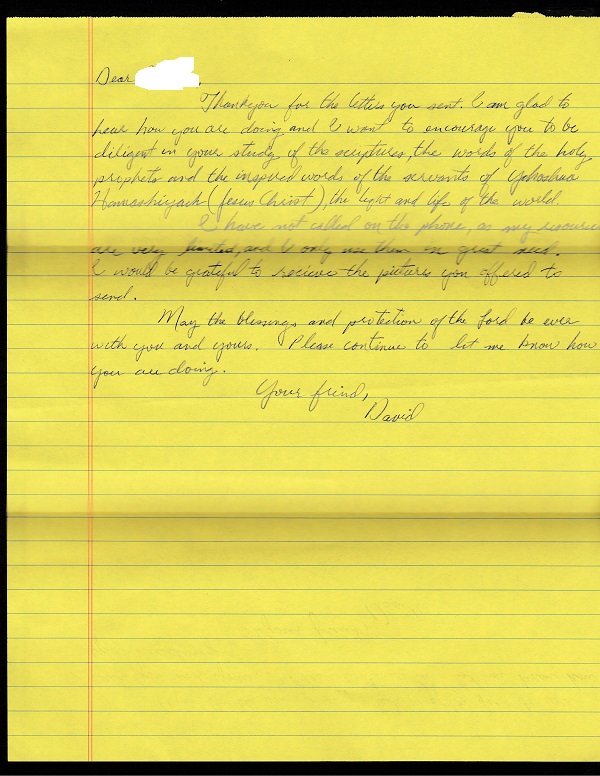 Dear
Thankyou for the letters you sent. I am glad to
hear how you are doing and I want to encourage you to be
diligent in your study of the scriptures, the words of the holy
prophets and the inspired words of the servants of Yahoshua
Hamashiyach (Jesus Christ), the light and life of the world.
I have not called on the phone, as my resources
are very limited, and I only use them in great need.
I would be grateful to recieve the pictures you offered to
send.
May the blessings and protection of the Lord be ever
with you and yours. Please continue to let me know how
you are doing.
Your frind,
David